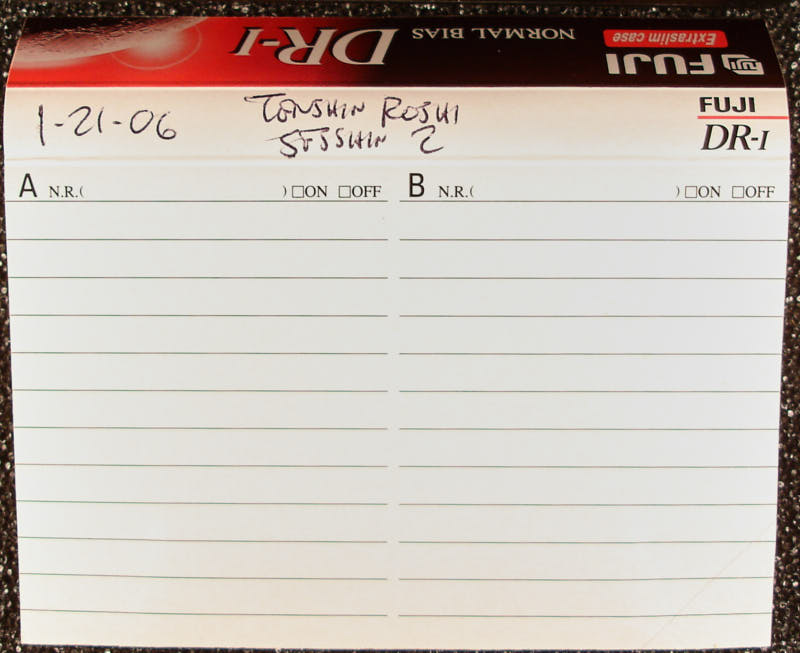 FUJI Extraslim case
NORMAL BIAS
DR-I
1-21-06 TENSHIN ROSHI
SESSHIN 2
FUJI
DR-I
A N.R.( ) □ON □OFF B N.R.( ) □ON □OFF